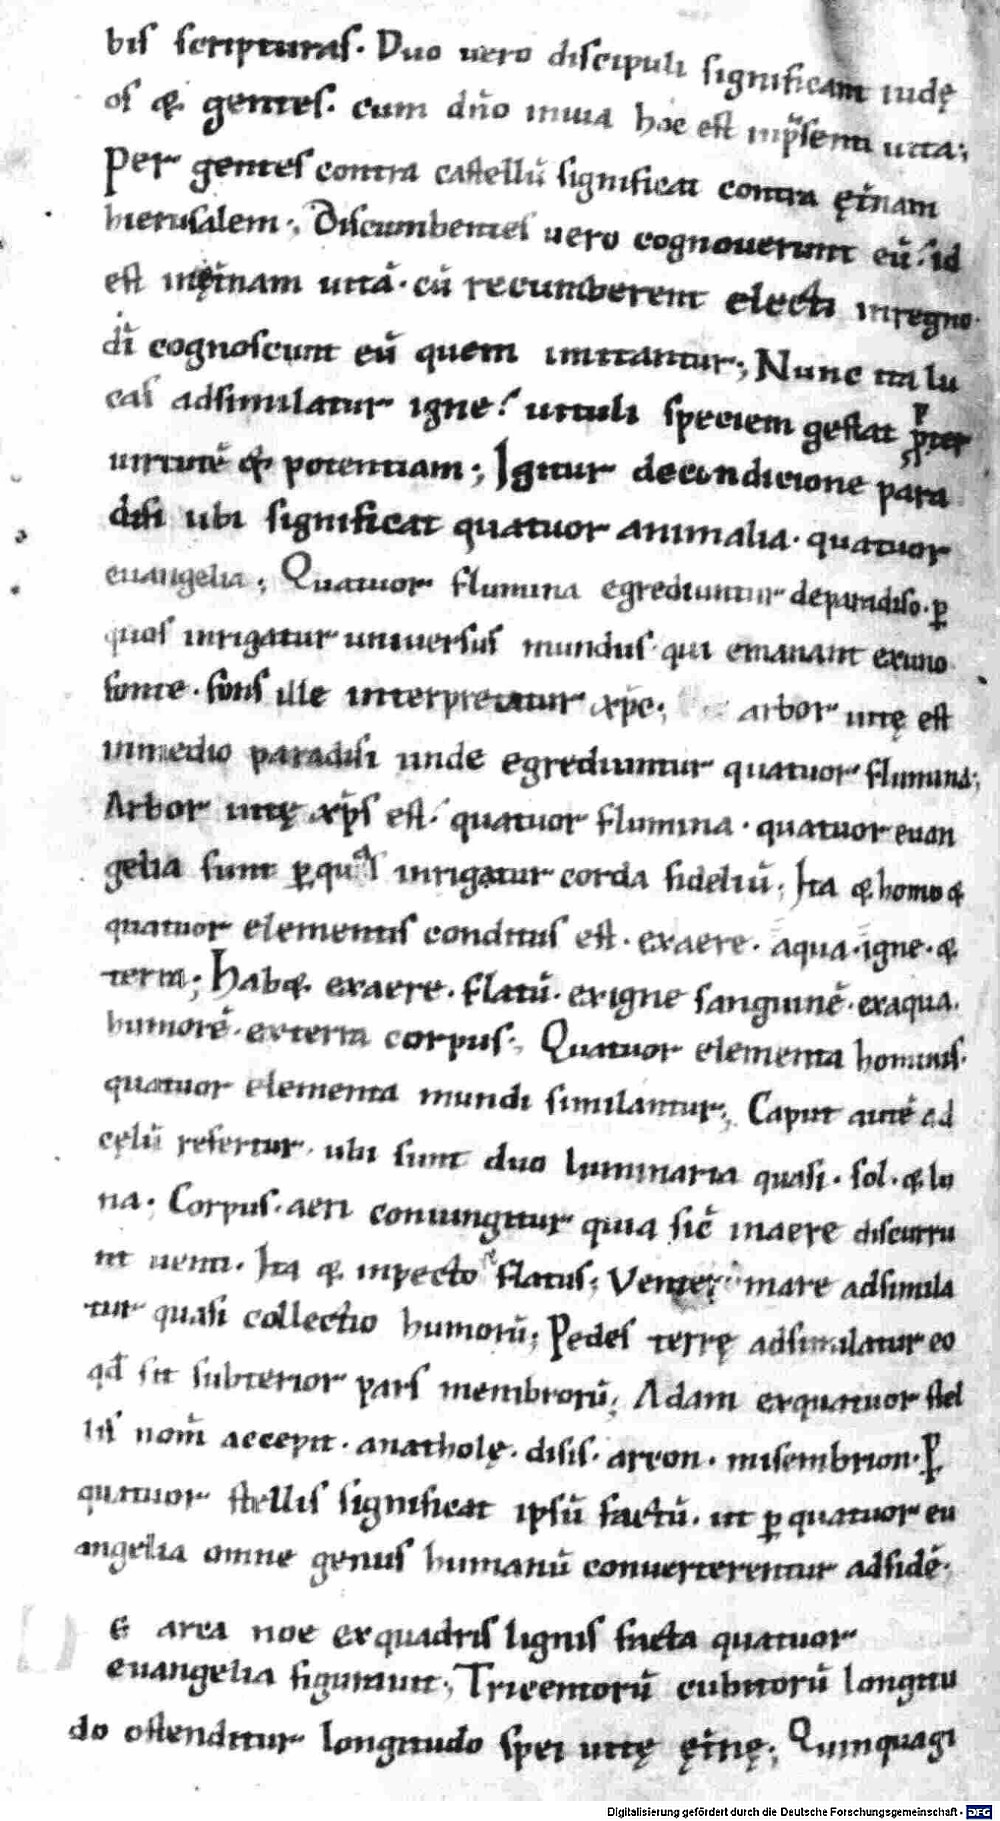 bis scripturas. Duo uero discipuli significant iudę
os & gentes. cum dn̄o in uia hoc est inp̄senti uita;
Per gentes contra castellū significat contra ęt̄nam
hierusalem; Discumbentes uero cognouerunt eū. id
est inęt̄nam uitā. cū recumberent electi inregno.
dī cognoscunt eū quem imitantur; Nunc ita lu
cas adsimilatur igne. uituli speciem gestat p̄pter
uirtutē & potentiam; Igitur decondicione para
disi ubi significat quatuor animalia. quatuor
euangelia; Quatuor flumina egrediuntur deparadiso. ꝑ
quos inrigatur uniuersus mundus. qui emanant exuno
fonte. fons ille interpretatur xp̄c; arbor uitę est
inmedio paradisi unde egrediuntur quatuor flumina;
Arbor uitę xp̄s est. quatuor flumina. quatuor euan
gelia sunt ꝑquas inrigatur corda fideliū; Ita & homo &
quatuor elementis conditus est. exaere. aqua. igne. &
terra; Hab&. exaere. flatū. exigne sanguinē. exaqua.
humorē. exterra corpus; Quatuor elementa hominis.
quatuor elementa mundi similantur; Caput autē ad
cęlū refertur. ubi sunt duo luminaria quasi. sol. & lu
na; Corpus. aeri coniungitur quia sic̄ inaere discurru
nt uenti. Ita & inpectore flatus; Venter mare adsimila
tur quasi collectio humorū; Pedes terrę adsimilatur eo
qd̄ sit subterior pars membrorū; Adam exquatuor stel
lis nom̄ accepit. anatholę. disis. arcon. misembrion. ꝑ
quatuor stellis significat ipsū factū. ut ꝑ quatuor eu
angelia omne genus humanū conuerterentur adfidē.
& arca noe exquadris lignis facta quatuor
euangelia figuraut; Tricentorū cubitorū longitu
do ostenditur longitudo spei uitę ęt̄nę; Quinquagi
Digitalisierung gefördert durch die Deutsche Forschungsgemeinschaft - DFG